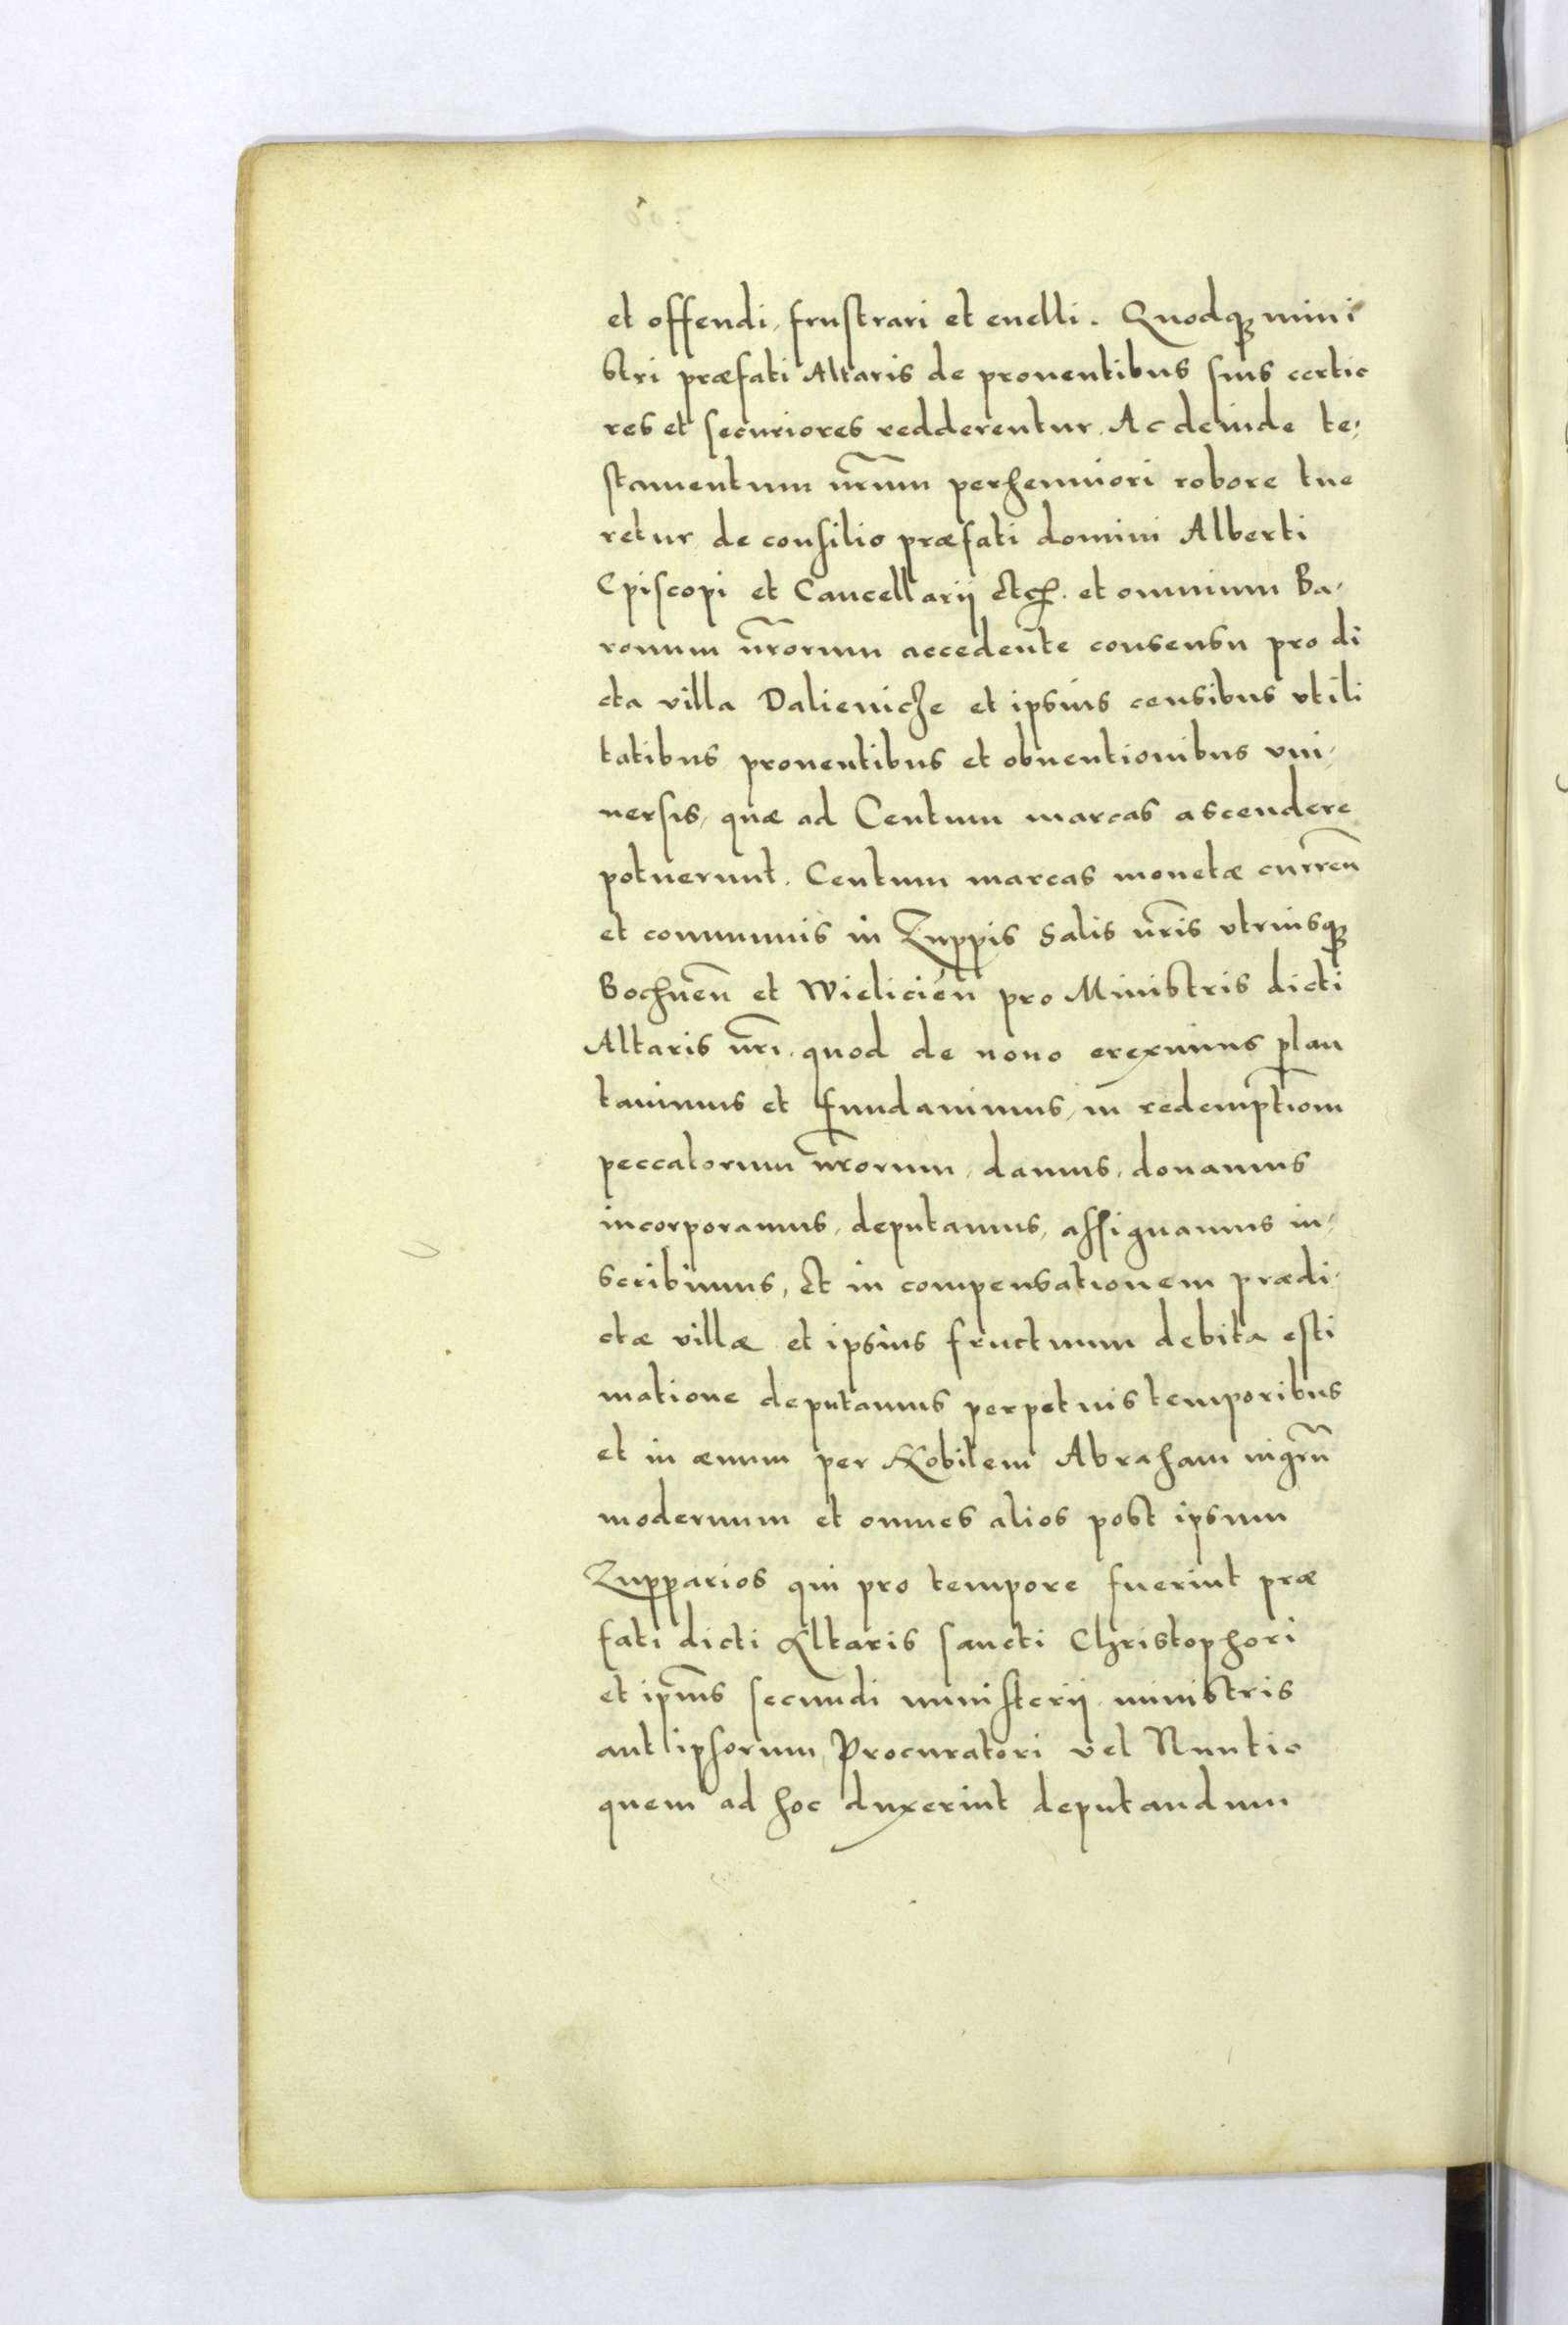 et offendi, frustrari et euelli. Quodq3 mini
stri præfati Altaris de prouentibus suis certio
res et securiores redderentur. Ac deinde te,
stamentum nr̃um perhenniori robore tue
retur de consilio præfati domini Alberti
Episcopi et Cancellarij etc. et omnium Ba,
ronum nr̃orum accedente consensu pro di
cta villa Dalieniche et ipsius censibus vtili
tatibus prouentibus et obuentionibus vni,
uersis, quæ ad Centum marcas ascendere
potuerunt. Centum marcas monetæ curren̄
et communis in Zuppis Salis nr̃is vtriusq3
Bochnen̄ et Wielicien̄ pro Ministris dicti
Altaris nr̃i, quod de nouo ereximus plan
tauimus et fundauimus, in redemptiom̄
peccatorum nr̃orum, damus, donamus
incorporamus, deputamus, assignamus in,
scribimus, Et in compensationem prædi,
ctæ villæ et ipsius fructuum debita esti
matione deputamus perpetuis temporibus
et in æuum per Nobilem Abraham nigrū
modernum et omnes alios post ipsum
Zupparios qui pro tempore fuerint præ
fati dicti Altaris sancti Christophori
et ipm̄s secundi ministerij ministris
aut ipsorum Procuratori vel Nuntio
quem ad hoc duxerint deputandum